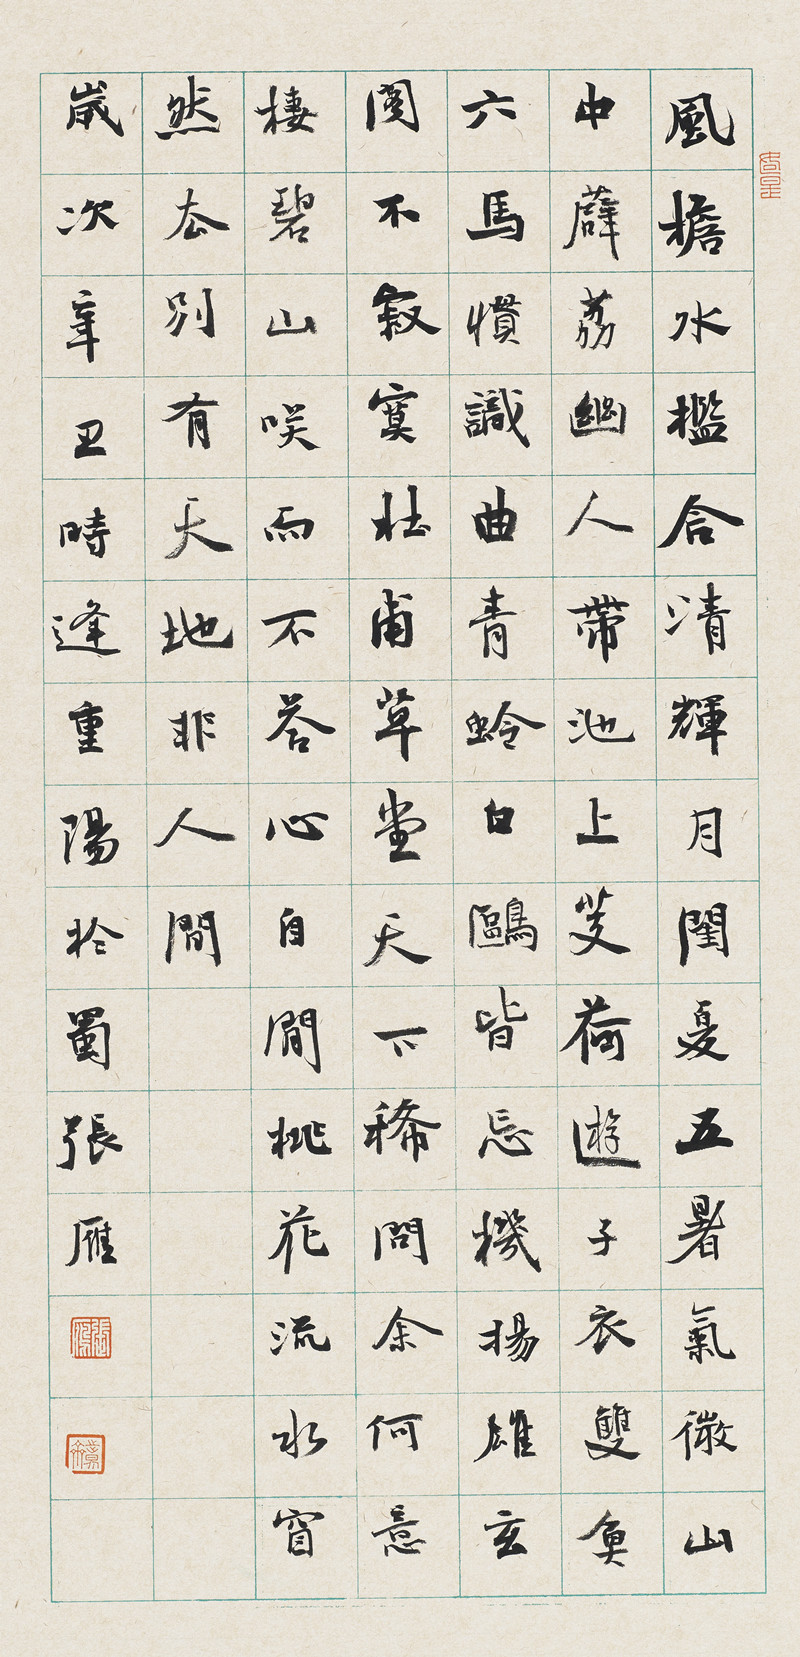 風檐水檻合清輝月閏夏五暑氣微山
中薜荔幽人帶池上芰荷遊子衣雙魚
六馬慣識曲青蛉白鷗皆忘機揚雄玄
閣不寂寞杜甫草堂天下稀問余何意
棲碧山咲而不答心自閒桃花流水窅
然去別有天地非人間
歲次辛丑時逢重陽於蜀張雁